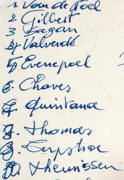 1 Van de Poel
2 Gilbert
3 Sagan
4 Valverde
5 Evenepoel
6. Chaves
7. Quintana
8. Thomas
9.
10 Theunissen